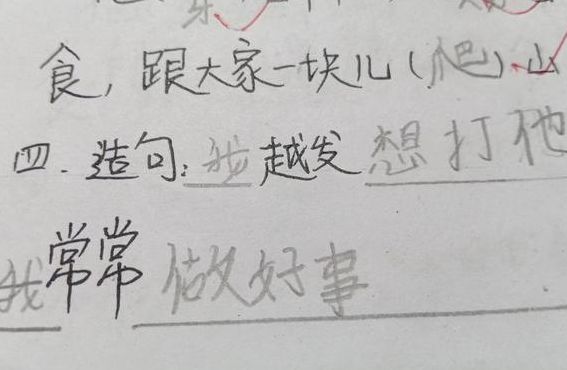 食,跟大家一块儿(爬)山
四.造句:我越发想打他
我常常做好事